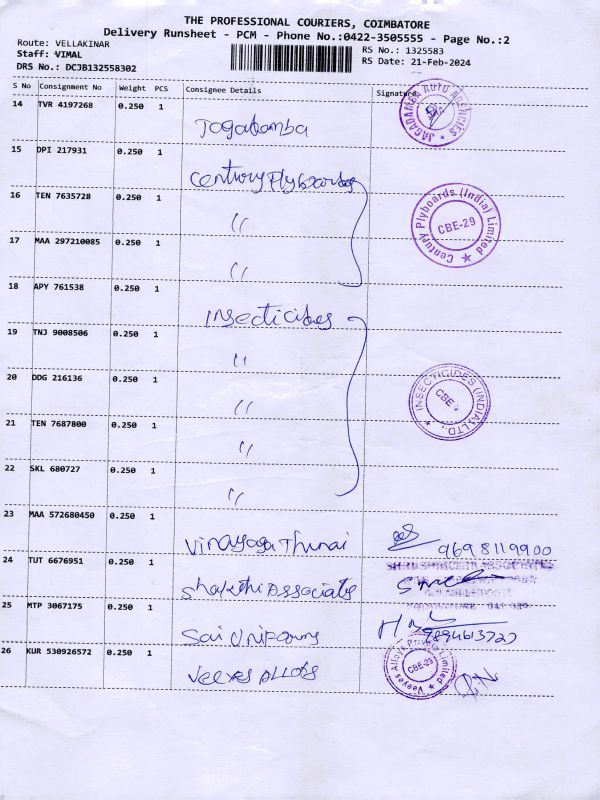 THE PROFESSIONAL COURIERS, COIMBATORE
Delivery Runsheet - PCM - Phone No.:0422-3505555 - Page No.:2
Route: VELLAKINAR
RS No.: 1325583
Staff: VIMAL
RS Date: 21-Feb-2024
DRS No.: DCJB132558302
S No Consignment No Weight PCS Consignee Details Signature
14 TVR 4197268 0.250 1
Jagadamba
JAGADAMBA AUTO AGENCIES
15 DPI 217931 0.250 1
Century Plyboards
16 TEN 7635728 0.250 1
Century Plyboards (India) Limited
CBE-29
"
17 MAA 297210085 0.250 1
"
18 APY 761538 0.250 1
Insecticides
19 TNJ 9008506 0.250 1
"
20 DDG 216136 0.250 1
INSECTICIDES (INDIA) LTD.
CBE
"
21 TEN 7687800 0.250 1
"
22 SKL 680727 0.250 1
"
23 MAA 572680450 0.250 1
Vinayaga Thunai
9698119900
24 TUT 6676951 0.250 1
Shakthi Associates
25 MTP 3067175 0.250 1
Sai Uniforms
26 KUR 530926572 0.250 1
Veeyes Alloys Private Limited
CBE-29
VEEYES ALLOYS